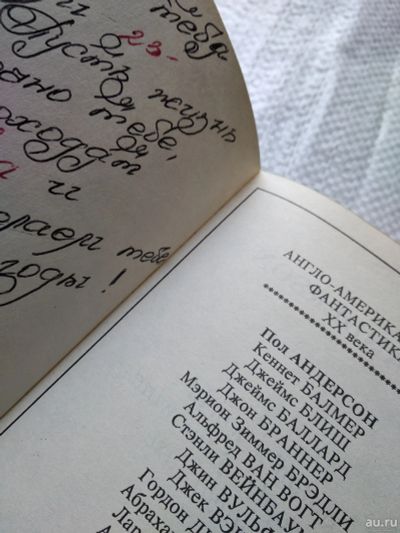 тебя
23-
Пусть жизнь
тебе,
и
тебе
годы!
АНГЛО-АМЕРИКА
ФАНТАСТИК
XX века
Пол АНДЕРСОН
Кеннет БАЛМЕР
Джеймс БЛИШ
Джеймс БАЛЛАРД
Джон БРАННЕР
Мэрион Зиммер БРЭДЛИ
Альфред ВАН ВОГТ
Стэнли ВЕЙНБАУМ
Джин ВУЛЬФ
Джек ВЭ
Гордон Д
Абрахам
Лар
au.ru